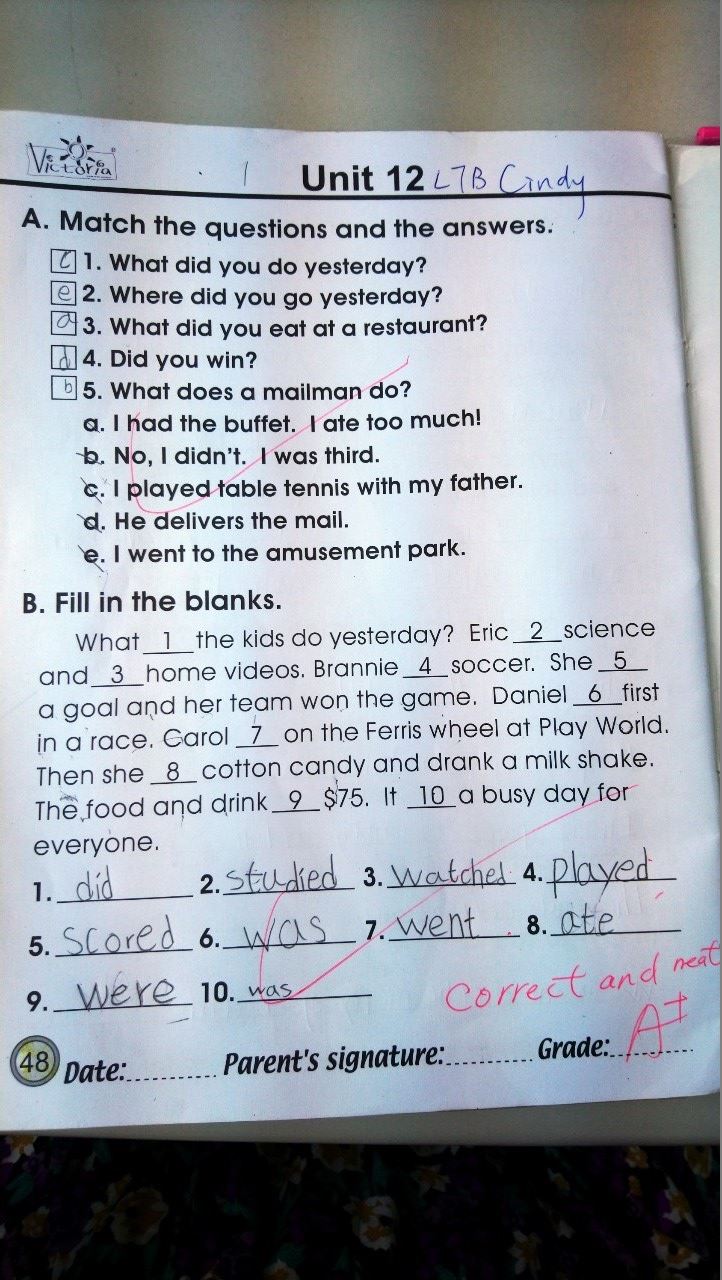 Victoria
Unit 12 L7B Cindy
A. Match the questions and the answers.
c 1. What did you do yesterday?
e 2. Where did you go yesterday?
a 3. What did you eat at a restaurant?
d 4. Did you win?
b 5. What does a mailman do?
a. I had the buffet. I ate too much!
b. No, I didn't. I was third.
c. I played table tennis with my father.
d. He delivers the mail.
e. I went to the amusement park.
B. Fill in the blanks.
What 1 the kids do yesterday? Eric 2 science
and 3 home videos. Brannie 4 soccer. She 5
a goal and her team won the game. Daniel 6 first
in a race. Carol 7 on the Ferris wheel at Play World.
Then she 8 cotton candy and drank a milk shake.
The food and drink 9 $75. It 10 a busy day for
everyone.
1. did 2. studied 3. watched 4. played
5. scored 6. was 7. went 8. ate
9. were 10. was
correct and neat
48 Date:......... Parent's signature:......... Grade:... A+